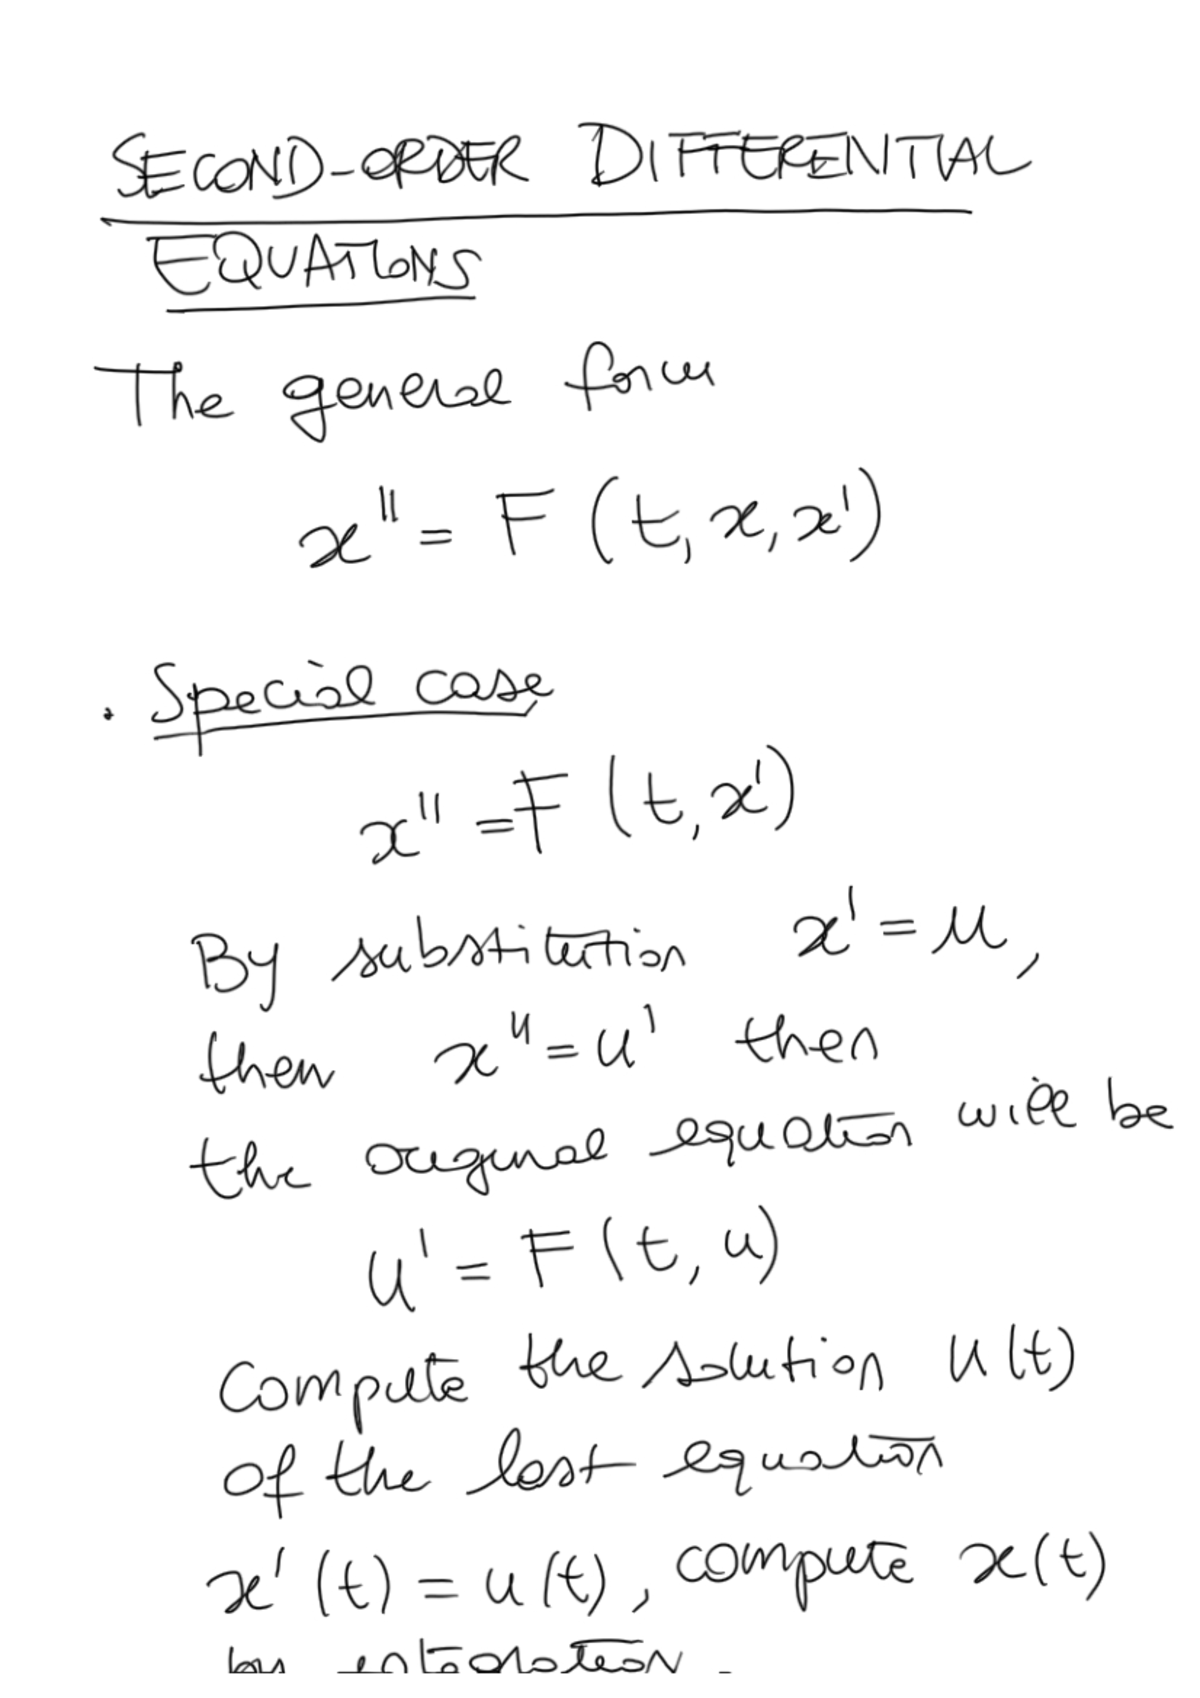 SECOND-ORDER DIFFERENTIAL
EQUATIONS
The general form
x'' = F (t, x, x')
. Special case
x'' = F (t, x')
By substitution x' = u,
then x'' = u' then
the original equation will be
u' = F (t, u)
Compute the solution u(t)
of the last equation
x'(t) = u(t), compute x(t)
by integration.